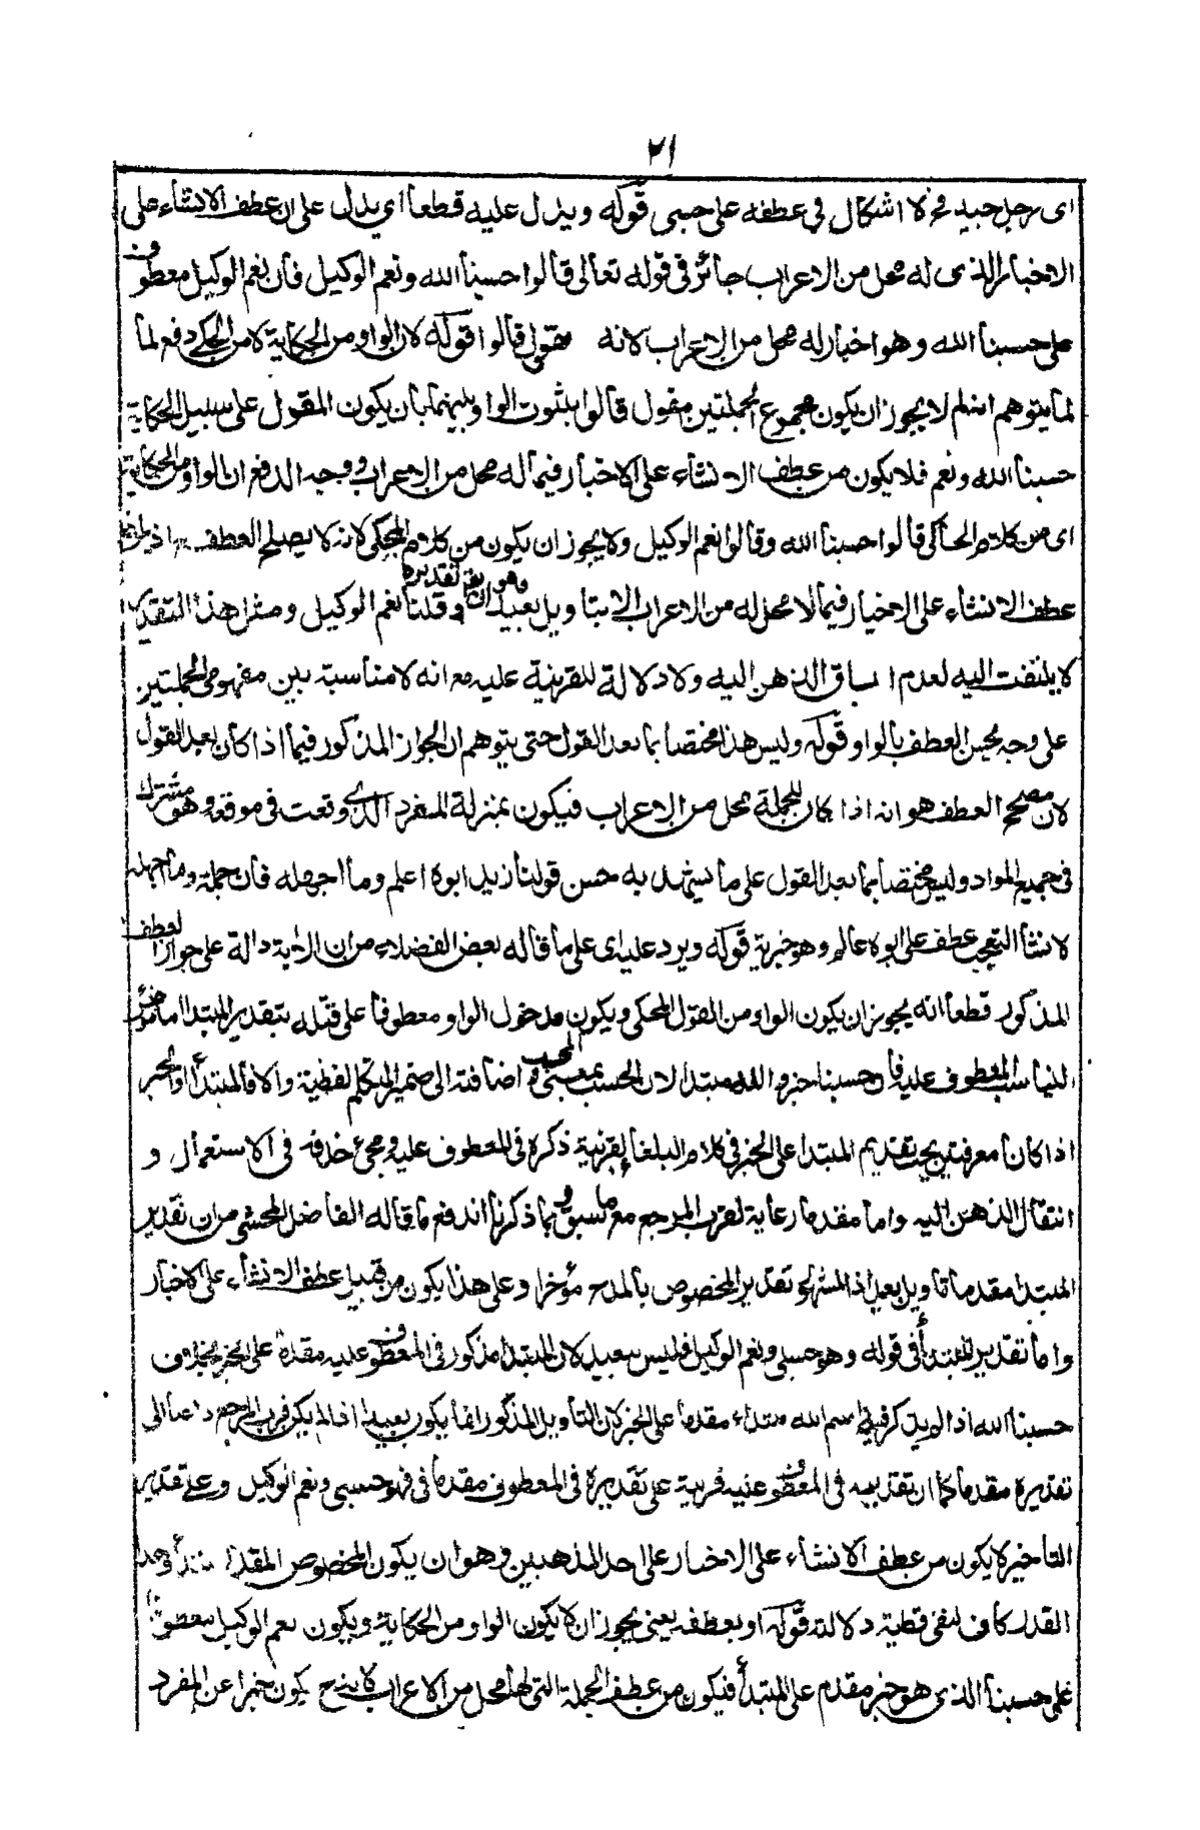 ٢١
اى رجل جيد فح لا اشكال فى عطفه على حسبى قوله ويدل عليه قطعا اي يدل على ان عطف الانشاء على
الاخبار الذى له محل من الاعراب جائز فى قوله تعالى قالوا حسبنا الله ونعم الوكيل فان نعم الوكيل معطوف
على حسبنا الله وهو اخبار له محل من الاعراب لانه مقول قالوا قوله لان الواو من الحكاية لا من المحكى دفع لما
لما يتوهم انه لم لا يجوز ان يكون مجموع الجملتين مقول قالوا بثبوت الواو بينهما بان يكون المقول على سبيل الحكاية
حسبنا الله ونعم فلا يكون من عطف الانشاء على الاخبار فيما له محل من الاعراب ووجه الدفع ان الواو من الحكاية
اى من كلام الحاكى قالوا حسبنا الله وقالوا نعم الوكيل ولا يجوز ان يكون من كلام المحكى لانه لا يصلح العطف اذ
عطف الانشاء على الاخبار فيما لا محل له من الاعراب الا بتاويل بعيد وهو ان تقديره وقلنا نعم الوكيل ومثل هذا التقدير
لا يلتفت اليه لعدم انسباق الذهن اليه ولا دلالة للقرينة عليه مع انه لا مناسبة بين مفهومى الجملتين
على وجه يحسن العطف بالواو قوله وليس هذا مختصا بما بعد القول حتى يتوهم ان الجواز المذكور فيما اذا كان بعد القول
لان مصحح العطف هو انه اذا كان للجملة محل من الاعراب فيكون بمنزلة المفرد الذى وقعت فى موقعه وهو مشترك
فى جميع المواد وليس مختصا بما بعد القول على ما يشهد به حسن قولنا زيد ابوه اعلم وما اجهله فان جملة وما اجهله
لانشا التعجب عطف على ابوه عالم وهو خبرية قوله ويرد عليه اى على ما قاله بعض الفضلاء من ان الاية دالة على جواز العطف
المذكور قطعا انه يجوز ان يكون الواو من القول المحكى ويكون مدخول الواو معطوفا على قبله بتقدير المبتدا اما مؤخرا
ليناسب المعطوف عليه فان حسبنا خبر والله مبتدا لان الحسب بمعنى المحسب و اضافته الى ضمير المتكلم لفظية والا فالمبتدأ والخبر
اذا كان معرفتين يجب تقديم المبتدا على الخبر فى كلام البلغا بقرينة ذكره فى المعطوف عليه ومجئ حذفه فى الاستعمال و
انتقال الذهن اليه واما مقدما رعاية لقرب المرجع مع ما سبق و بما ذكرنا اندفع ما قاله الفاضل المحشى من ان تقدير
المبتدا مقدما تاويل بعيد اذ المشهور تقدير المخصوص بالمدح مؤخرا وعلى هذا يكون من قبيل عطف الانشاء على الاخبار
واما تقدير المبتدأ فى قوله وهو حسبى ونعم الوكيل فليس ببعيد لان المبتدا مذكور فى المعطوف عليه مقدما على الخبر بخلاف
حسبنا الله اذا لم يذكر فيه اسم الله مبتداء مقدما على الخبر لان التأويل المذكور انما يكون بعيدا اذا لم يكن قرب المرجع داعيا الى
تقديره مقدما كما ان تقديمه فى المعطوف عليه قرينة على تقديره فى المعطوف مقدما فى وهو حسبى ونعم الوكيل وعلى تقدير
التاخير لا يكون من عطف الانشاء على الاخبار على احد المذهبين وهو ان يكون المخصوص المقدر مبتدأ وهذا
القدر كاف لنفى قطعية دلالته قوله او بعطفه يعنى يجوز ان لا يكون الواو من الحكاية ويكون نعم الوكيل معطوفا
على حسبنا الذى هو خبر مقدم على المبتدأ فيكون من عطف الجملة التى لها محل من الاعراب لانه ح يكون خبرا عن المفرد